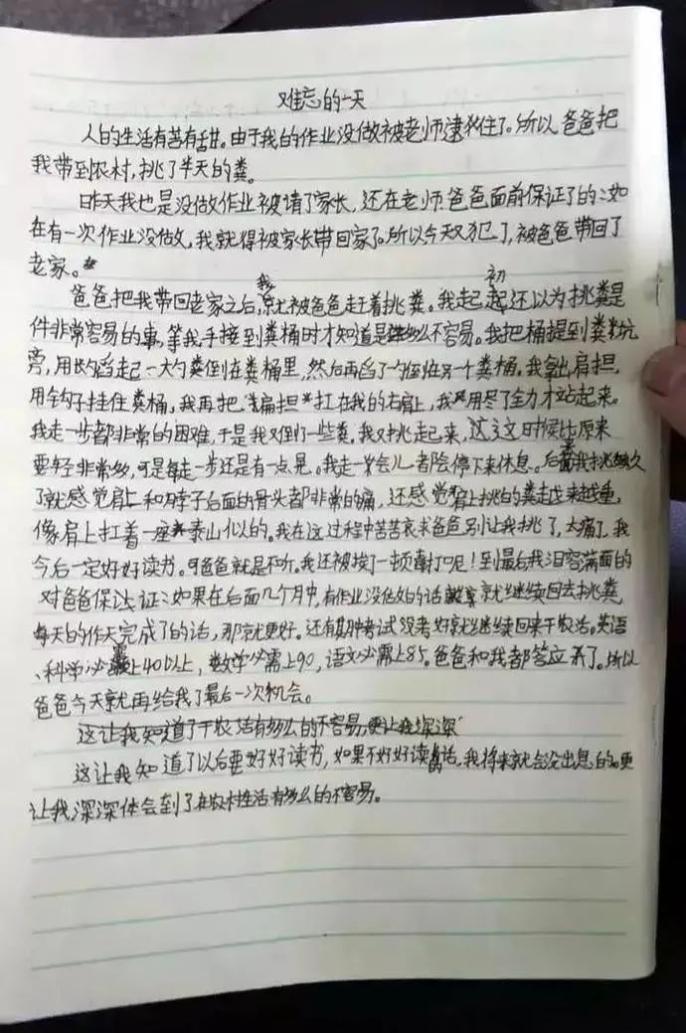 难忘的一天
人的生活有苦有甜。由于我的作业没做被老师逮住了。所以爸爸把
我带到农村,挑了半天的粪。
昨天我也是没做作业被请了家长,还在老师爸爸面前保证了的:如
在有一次作业没做,我就得被家长带回家了。所以今天又犯了,被爸爸带回了
老家。
爸爸把我带回老家之后,我就被爸爸赶着挑粪。我起初还以为挑粪是
件非常容易的事,等我手接到粪桶时才知道是多么不容易。我把桶提到粪坑
旁,用长勺舀起一大勺粪倒在粪桶里,然后再舀了一勺倒在另一个粪桶。我拿出肩担,
用钩子挂住粪桶,我再把扁担扛在我的右肩上,我用尽了全力才站起来。
我走一步都非常的困难,于是我又倒了一些粪,我又挑走起来,这这时候比原来
要轻非常多,可是每走一步还是有一点晃。我走一会儿都会停下来休息。后面我挑久
了就感觉肩上和脖子后面的骨头都非常的痛,还感觉肩上挑的粪越来越重,
像肩上扛着一座泰山似的。我在这过程中苦苦哀求爸爸别让我挑了,太痛了,我
今后一定好好读书。可爸爸就是不听。我还被挨了一顿打呢!到最后我泪容满面的
对爸爸保证:如果在后面几个月中,有作业没做的话就继续回去挑粪,
每天的作天完成了的话,那就更好。还有期中考试没考好就继续回来干农活。英语
、科学必需上40以上,数学必需上90,语文必需上85。爸爸和我都答应了。所以
爸爸今天就再给我了最后一次机会。
这让我知道了干农活有多么的不容易,更让我深深
这让我知道了以后要好好读书,如果不好好读书的话,我将来就会没出息的。更
让我深深体会到了在农村生活有多么的不容易。